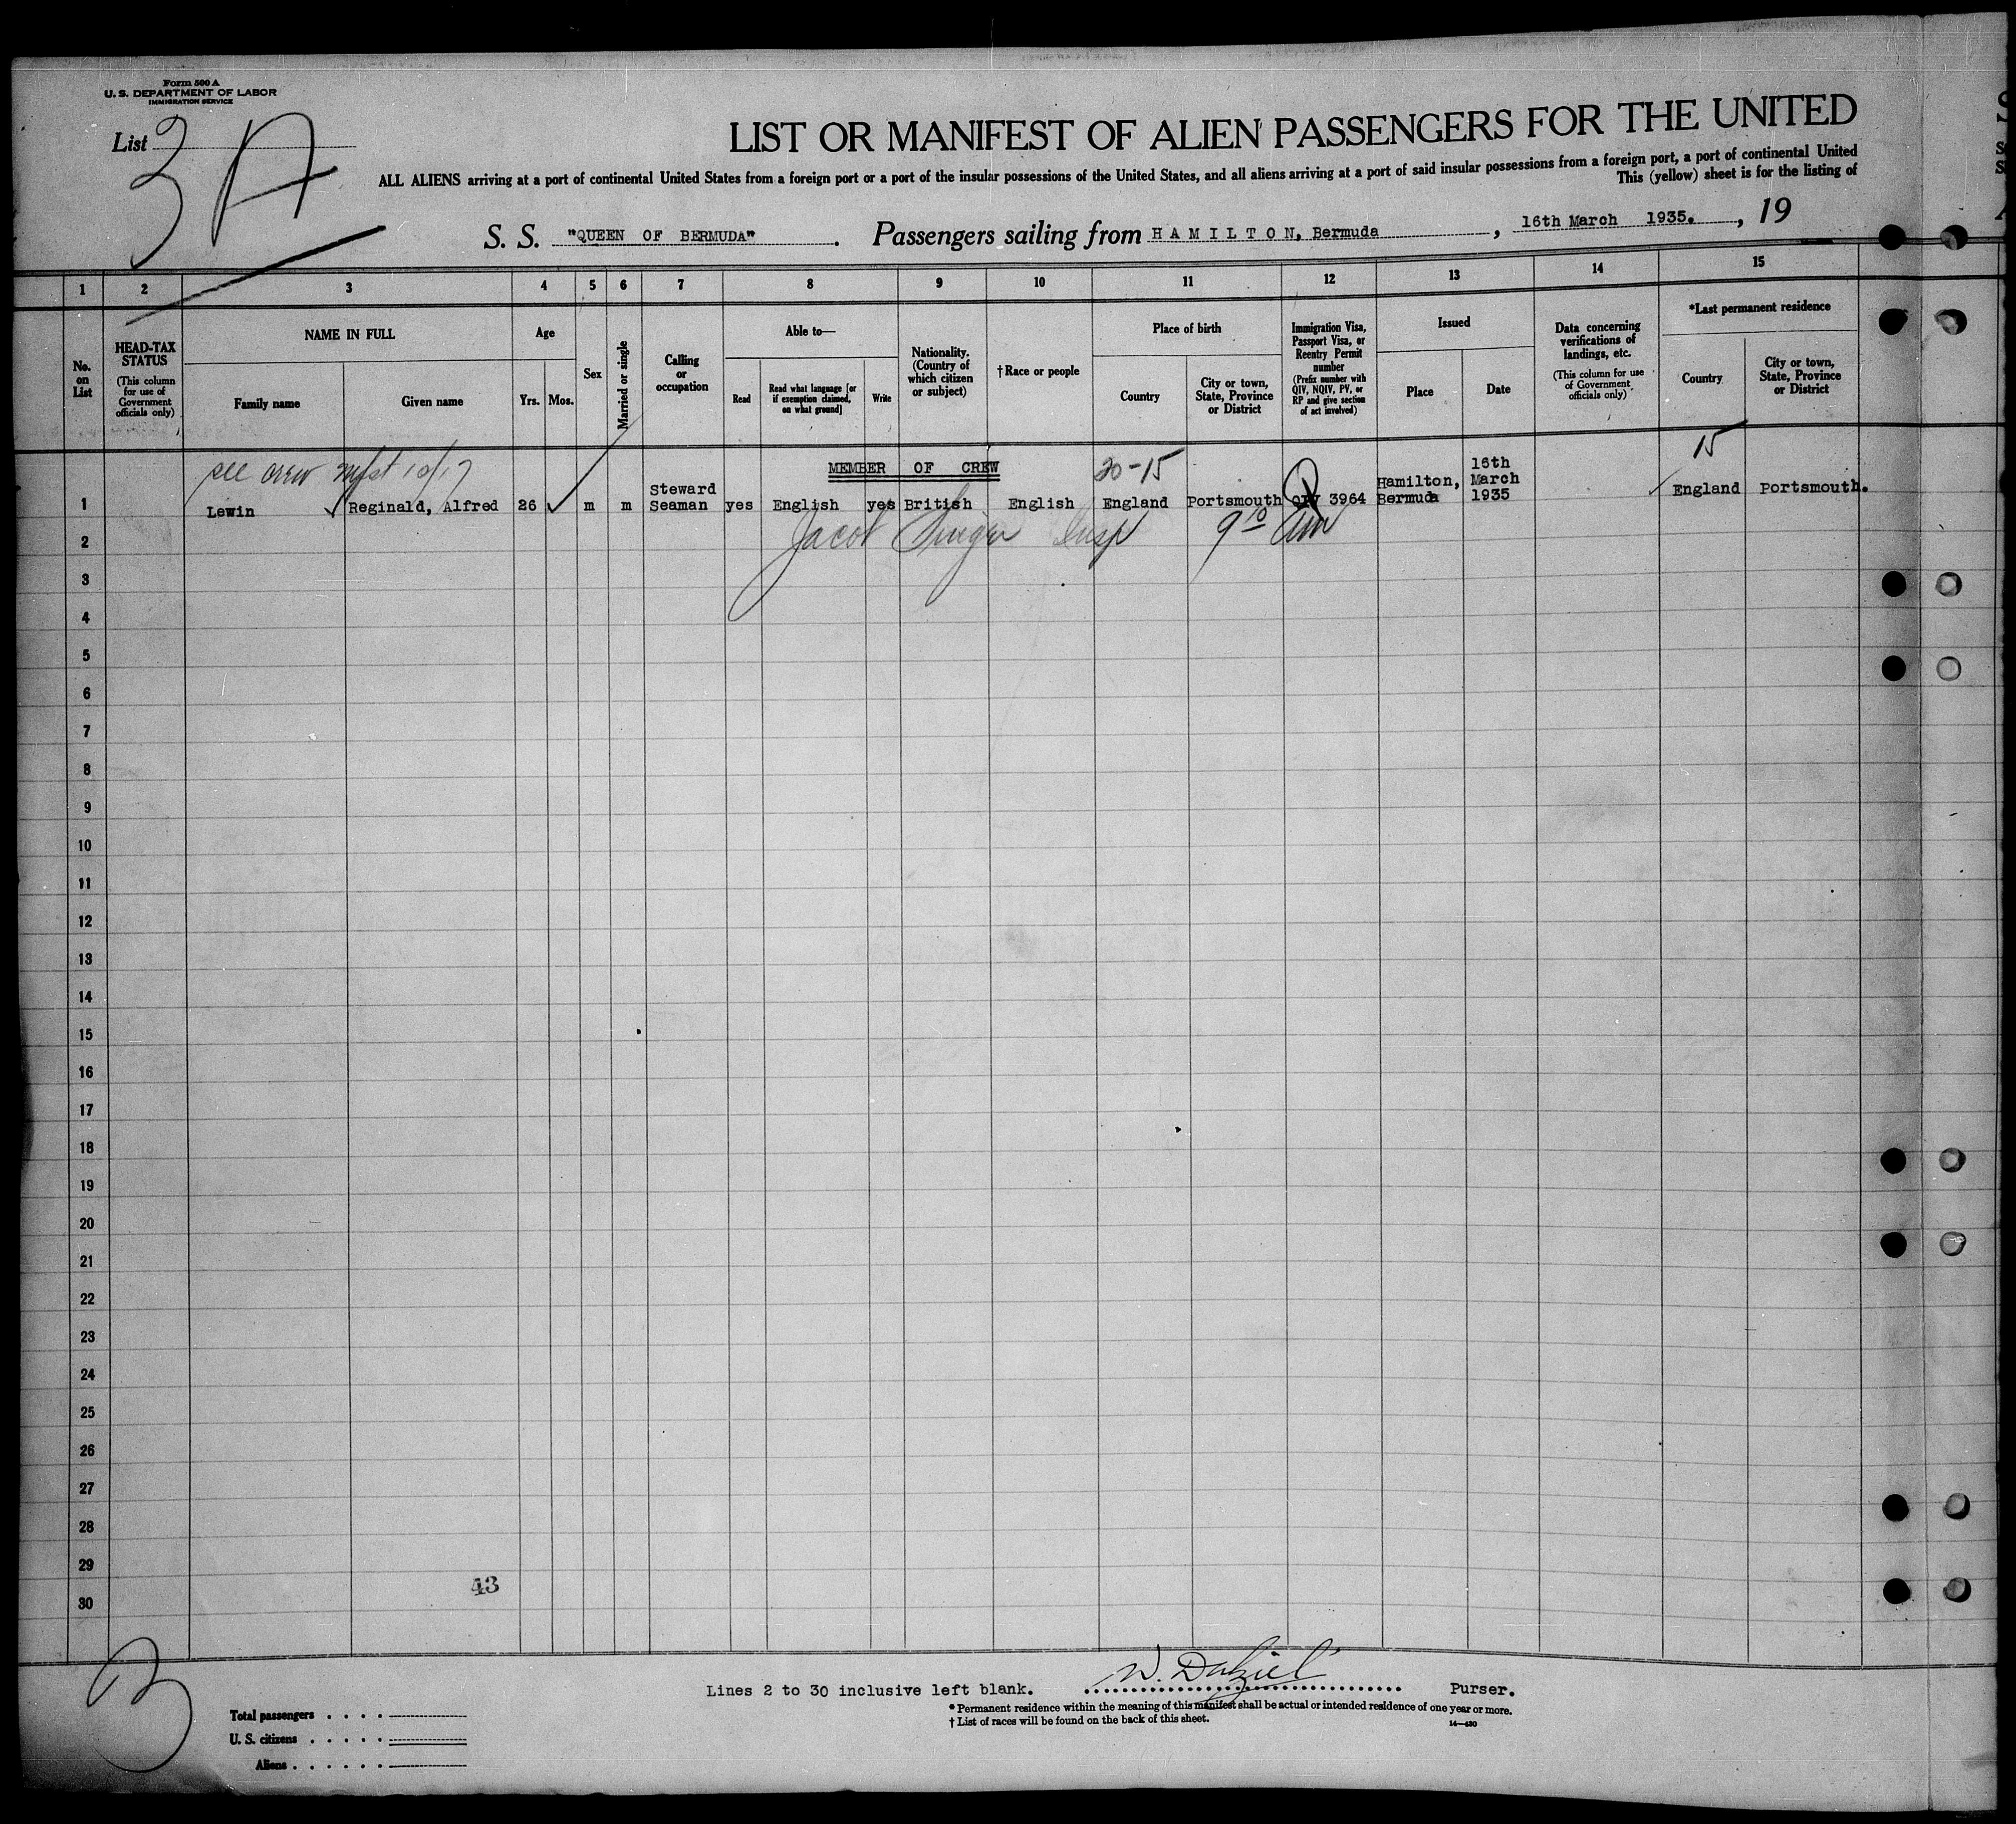 Form 500 A
U. S. DEPARTMENT OF LABOR
IMMIGRATION SERVICE
List 3 A
LIST OR MANIFEST OF ALIEN PASSENGERS FOR THE UNITED
ALL ALIENS arriving at a port of continental United States from a foreign port or a port of the insular possessions of the United States, and all aliens arriving at a port of said insular possessions from a foreign port, a port of continental United
This (yellow) sheet is for the listing of
S. S. "QUEEN OF BERMUDA". Passengers sailing from HAMILTON, Bermuda, 16th March 1935., 19
1 2 3 4 5 6 7 8 9 10 11 12 13 14 15
No. on List
HEAD-TAX STATUS
(This column for use of Government officials only)
NAME IN FULL
Family name
Given name
Age
Yrs. Mos.
Sex
Married or single
Calling or occupation
Able to—
Read
Read what language [or if exemption claimed, on what ground]
Write
Nationality. (Country of which citizen or subject)
†Race or people
Place of birth
Country
City or town, State, Province or District
Immigration Visa, Passport Visa, or Reentry Permit number
(Prefix number with QIV, NQIV, PV, or RP and give section of act involved)
Issued
Place
Date
Data concerning verifications of landings, etc.
(This column for use of Government officials only)
*Last permanent residence
Country
City or town, State, Province or District
see crew mfst
MEMBER OF CREW
20-15
15
1 Lewin Reginald, Alfred 26 m m Steward Seaman yes English yes British English England Portsmouth QIV 3964 Hamilton, Bermuda 16th March 1935 England Portsmouth.
Jacob Singer Insp 9 10 am
2
3
4
5
6
7
8
9
10
11
12
13
14
15
16
17
18
19
20
21
22
23
24
25
26
27
28
29
30
43
Lines 2 to 30 inclusive left blank. W. Dalziel Purser.
* Permanent residence within the meaning of this manifest shall be actual or intended residence of one year or more.
† List of races will be found on the back of this sheet.
14—430
Total passengers
U. S. citizens
Aliens